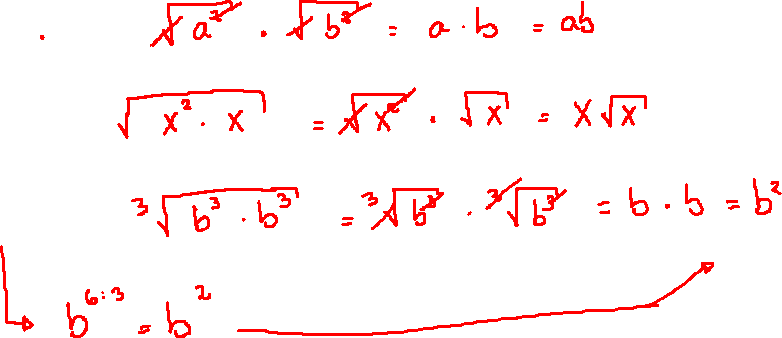 . √a² · √b² = a · b = ab
√(x² · x) = √x² · √x = x√x
³√(b³ · b³) = ³√b³ · ³√b³ = b · b = b²
b⁶:³ = b²